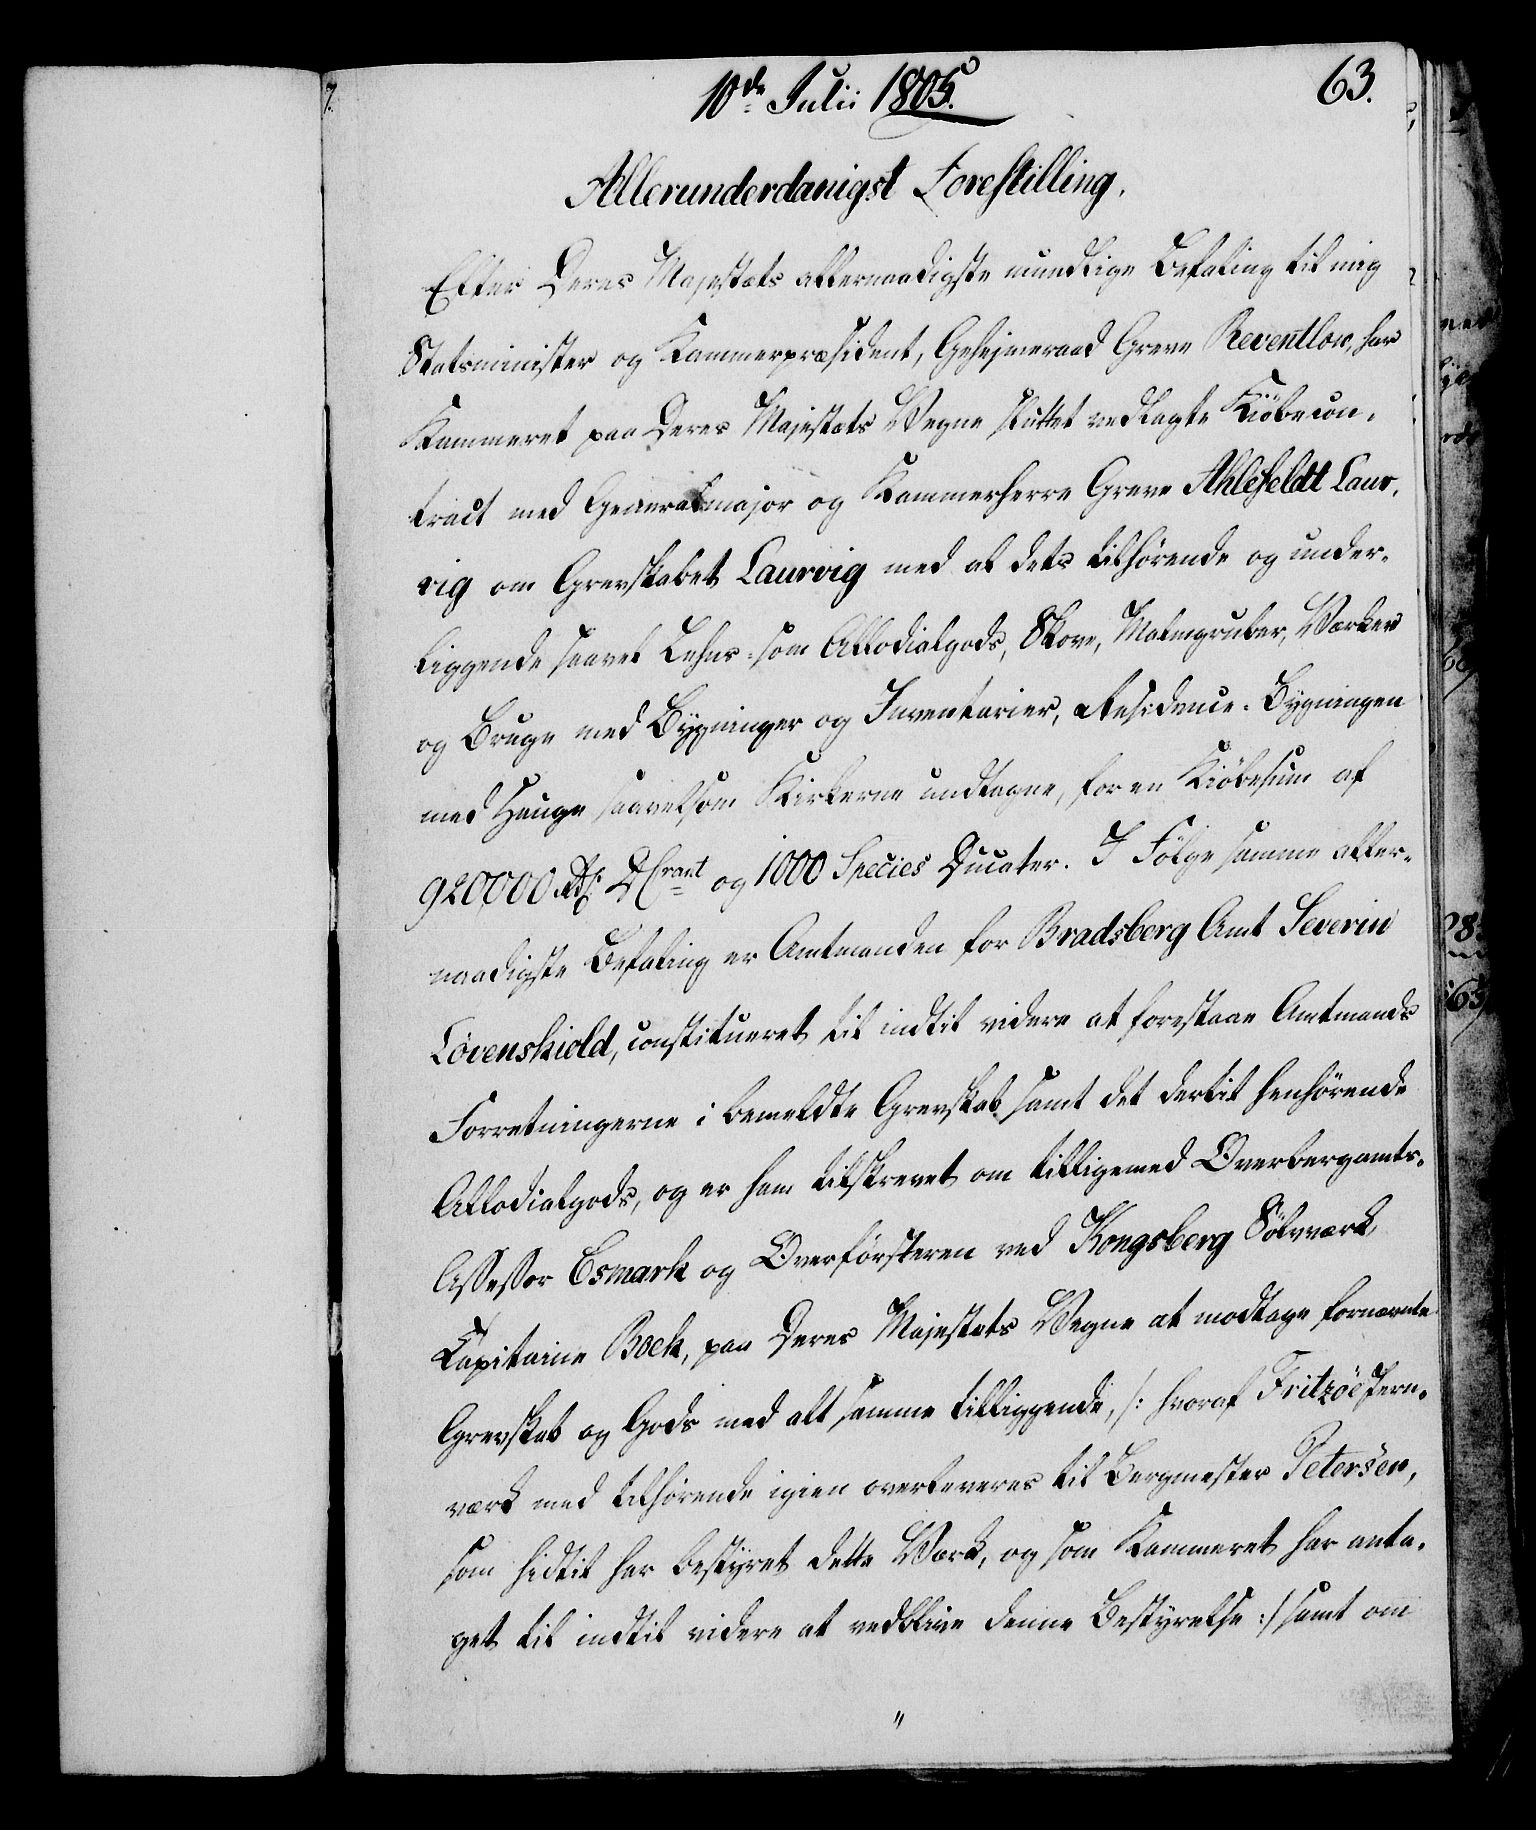 10de Julii 1805.
63.
Allerunderdanigst Forestilling.
Efter Deres Majestæts allernaadigste mundtlige Befaling til mig
Statsminister og Kammerpræsident, Geheimeraad Greve Reventlow, har
Kammeret paa Deres Majestæts Vegne sluttet vedlagte Kiöbecon-
tract med Generalmajor og Kammerherre Greve Ahlefeldt Laur-
vig om Grevskabet Laurvig med al dets tilhörende og under-
liggende saavel Lehns- som Allodialgods, Skove, Malmgruber, Værker
og Bruge med Bygninger og Inventarier, Residence-Bygningen
med Hauge saavelsom Kirkerne undtagne, for en Kiöbesum af
920,000 Rdl. DCrant og 1000 Species Ducater. I Fölge samme aller-
naadigste Befaling er Amtmanden for Bradsberg Amt Severin
Lövenskiold, constitueret til indtil videre at forestaae Amtmands
Forretningerne i bemeldte Grevskab samt det dertil henhörende
Allodialgods, og er ham tilskrevet om tilligemed Overbergamts-
Assessor Esmark og Overförsteren ved Kongsberg Sölvværk,
Capitaine Bock, paa Deres Majestæts Vegne at modtage fornævnte
Grevskab og Gods med alt samme tilliggende, /: hvoraf Fritzöe Jern-
værk med tilhörende igien overleveres til Bergmester Petersen,
som hidtil har bestyret dette Værk, og som Kammeret har anta-
get til indtil videre at vedblive denne Bestyrelse :/ samt om
"